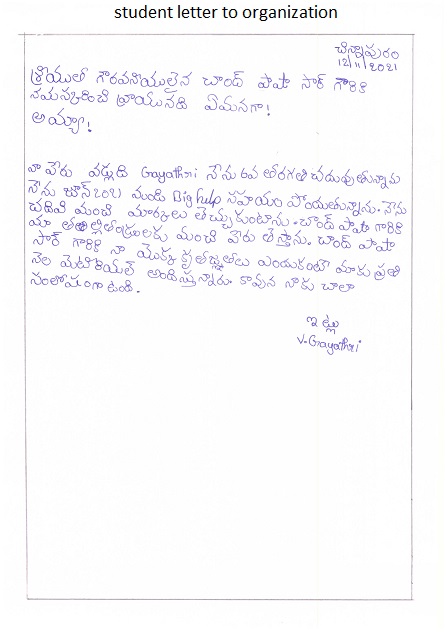 student letter to organization
చిన్నాపురం
12/11/2021
శ్రీయుతో గౌరవనీయులైన చాంద్ పాషా సార్ గారికి
నమస్కరించి వ్రాయునది ఏమనగా!
అయ్యా!
నా పేరు వడ్లది Gayathri నేను 6వ తరగతి చదువుతున్నాను
నేను జూన్ 2021 నుండి Big help సహాయం పొందుతున్నాను. నేను
చదివి మంచి మార్కులు తెచ్చుకుంటాను. చాంద్ పాషా గారికి
మా తల్లితండ్రులకు మంచి పేరు తెస్తాను. చాంద్ పాషా
సార్ గారికి నా యొక్క కృతజ్ఞతలు ఎందుకంటే మాకు ప్రతి
నెల మెటిరియల్ అందిస్తున్నారు. కావున నాకు చాలా
సంతోషంగా ఉంది.
ఇట్లు
V-Gayathri